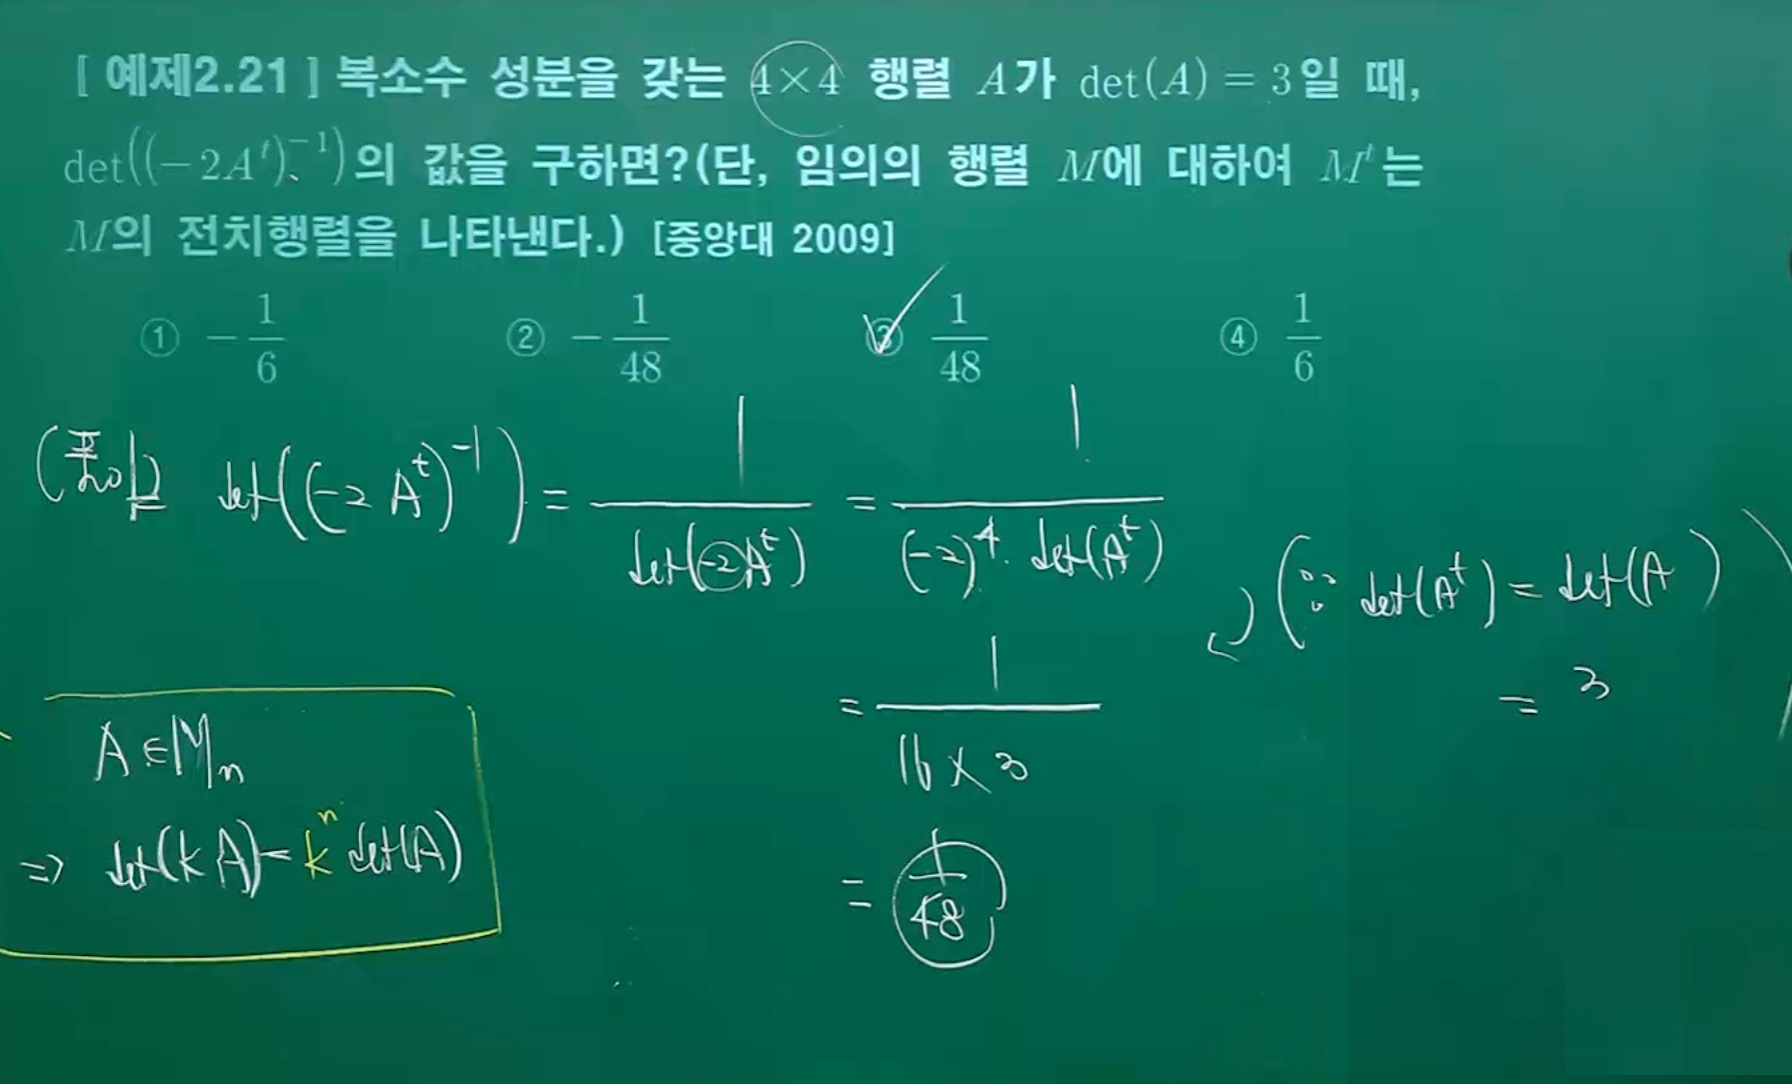 [ 예제2.21 ] 복소수 성분을 갖는 4×4 행렬 A가 det(A) = 3일 때,
det((−2Aᵗ)⁻¹)의 값을 구하면?(단, 임의의 행렬 M에 대하여 Mᵗ는
M의 전치행렬을 나타낸다.) [중앙대 2009]
① −1/6 ② −1/48 ③ 1/48 ④ 1/6
(풀이) det((−2Aᵗ)⁻¹) = 1/det(−2Aᵗ) = 1/((−2)⁴·det(Aᵗ))
(∵ det(Aᵗ) = det(A)
= 3)
= 1/(16×3)
= 1/48
A∈Mₙ
⇒ det(kA) = kⁿ det(A)